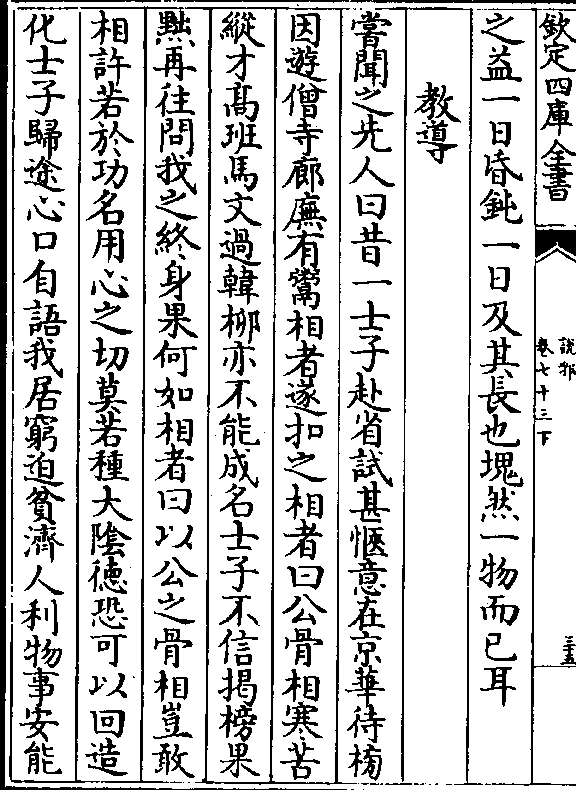 欽定四庫全書
説郛
卷七十三下
三十五
之益一日昏鈍一日及其長也塊然一物而已耳
教導
嘗聞之先人曰昔一士子赴省試甚愜意在京華待榜
因遊僧寺廊廡有鬻相者遂扣之相者曰公骨相寒苦
縱才髙班馬文過韓栁亦不能成名士子不信揭榜果
黜再往問我之終身果何如相者曰以公之骨相豈敢
相許若於功名用心之切莫若種大隂德恐可以回造
化士子歸途心口自語我居窮迫貧濟人利物事安能